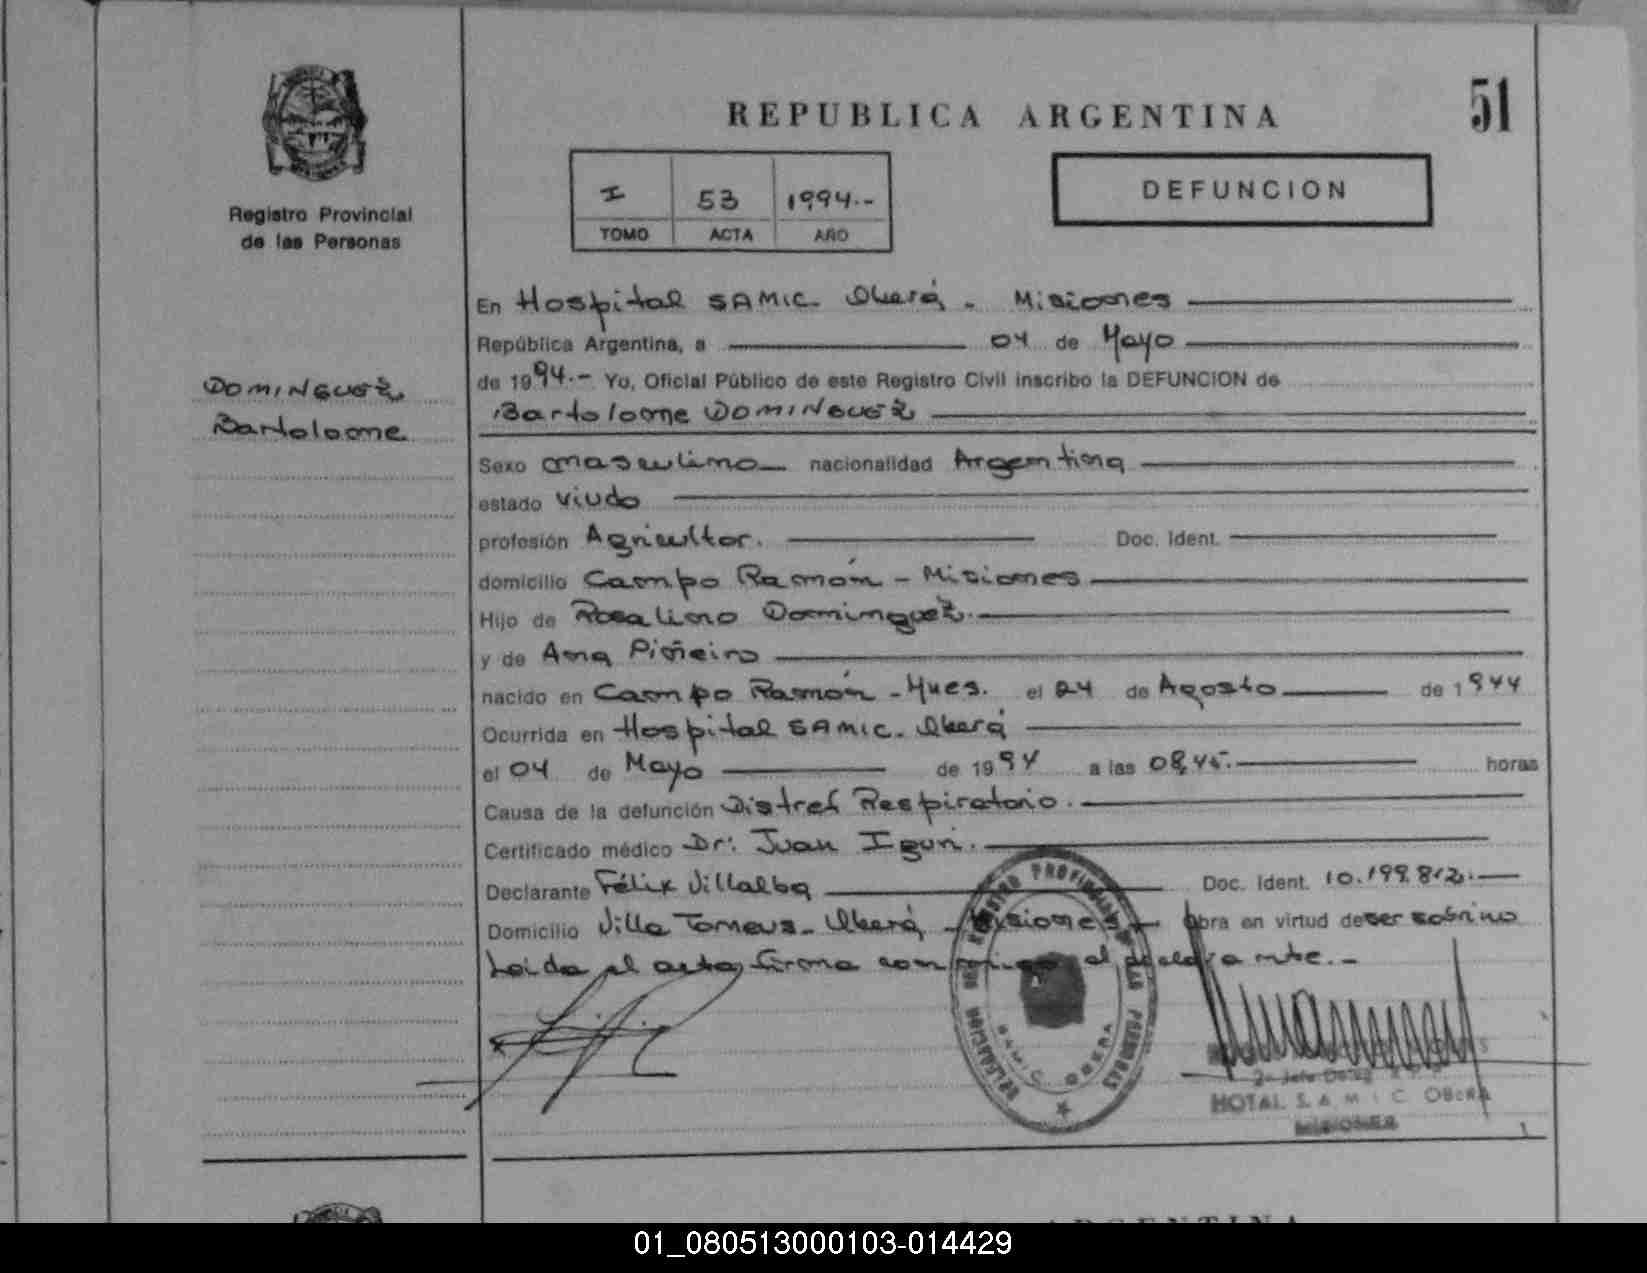 REPUBLICA ARGENTINA
51
Registro Provincial
de las Personas
I 53 1994.-
TOMO ACTA AÑO
DEFUNCION
DOMINGUEZ
Bartolome
En Hospital SAMIC. Oberá - Misiones
República Argentina, a 04 de Mayo
de 1994.- Yo, Oficial Público de este Registro Civil inscribo la DEFUNCION de
Bartolome DOMINGUEZ
Sexo masculino nacionalidad Argentina
estado Viudo
profesión Agricultor. Doc. Ident.
domicilio Campo Ramón - Misiones
Hijo de Rosalino Dominguez.
y de Ana Piñeiro
nacido en Campo Ramón - Mnes. el 24 de Agosto de 1944
Ocurrida en Hospital SAMIC. Oberá
el 04 de Mayo de 1994 a las 08,45. horas
Causa de la defunción Distref Respiratorio.
Certificado médico Dr: Juan
Declarante Félix Villalba Doc. Ident. 10.199.812.
Domicilio Villa Oberá - Misiones Obra en virtud de ser sobrino
Leida el acta, firma conmigo el declarante.-
REGISTRO PROVINCIAL DE LAS PERSONAS
DELEGACION
SAMIC OBERA
2º Jefe
HOTAL S.A.M.I.C. OBERA
MISIONES
ARGENTINA
01_080513000103-014429